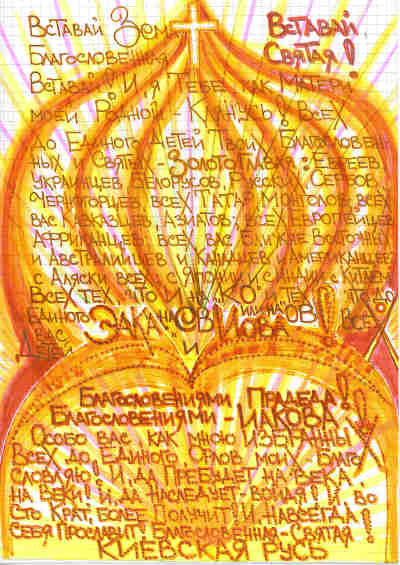 Вставай Земля
Благословенная
Вставай! И я Тебе как Матери
Вставай
Святая!
моей Родной - клянусь! Всех
до Единого Детей Твоих Благословен
ных и Святы - Золотоглавая: Евреев
украинцев Белорусов, Русских Сербов,
Черногорцев, всех Татар, Монголов, всех
вас Кавказцев, Азиатов: всех Европейцев
Африканцев всех вас Ближне Восточных
и Австралийцев и Канадцев, Американцев
с Аляски, всех с Японии с Китаем
Всех тех что и на "КО"
Единого
или на "ОВ"
Всех
вас
Детей
И
Благословениями Прадеда!
Благословениями - Иакова!
Особо вас как мною Избранных
Всех до Единого Орлов моих Благо
словляю! И да Пребудет на века
на веки! и да наследует - войдя! И во
сто Крат, более Получит! И навсегда!
себя Прославит! Благословенная - Святая!
Киевская Русь